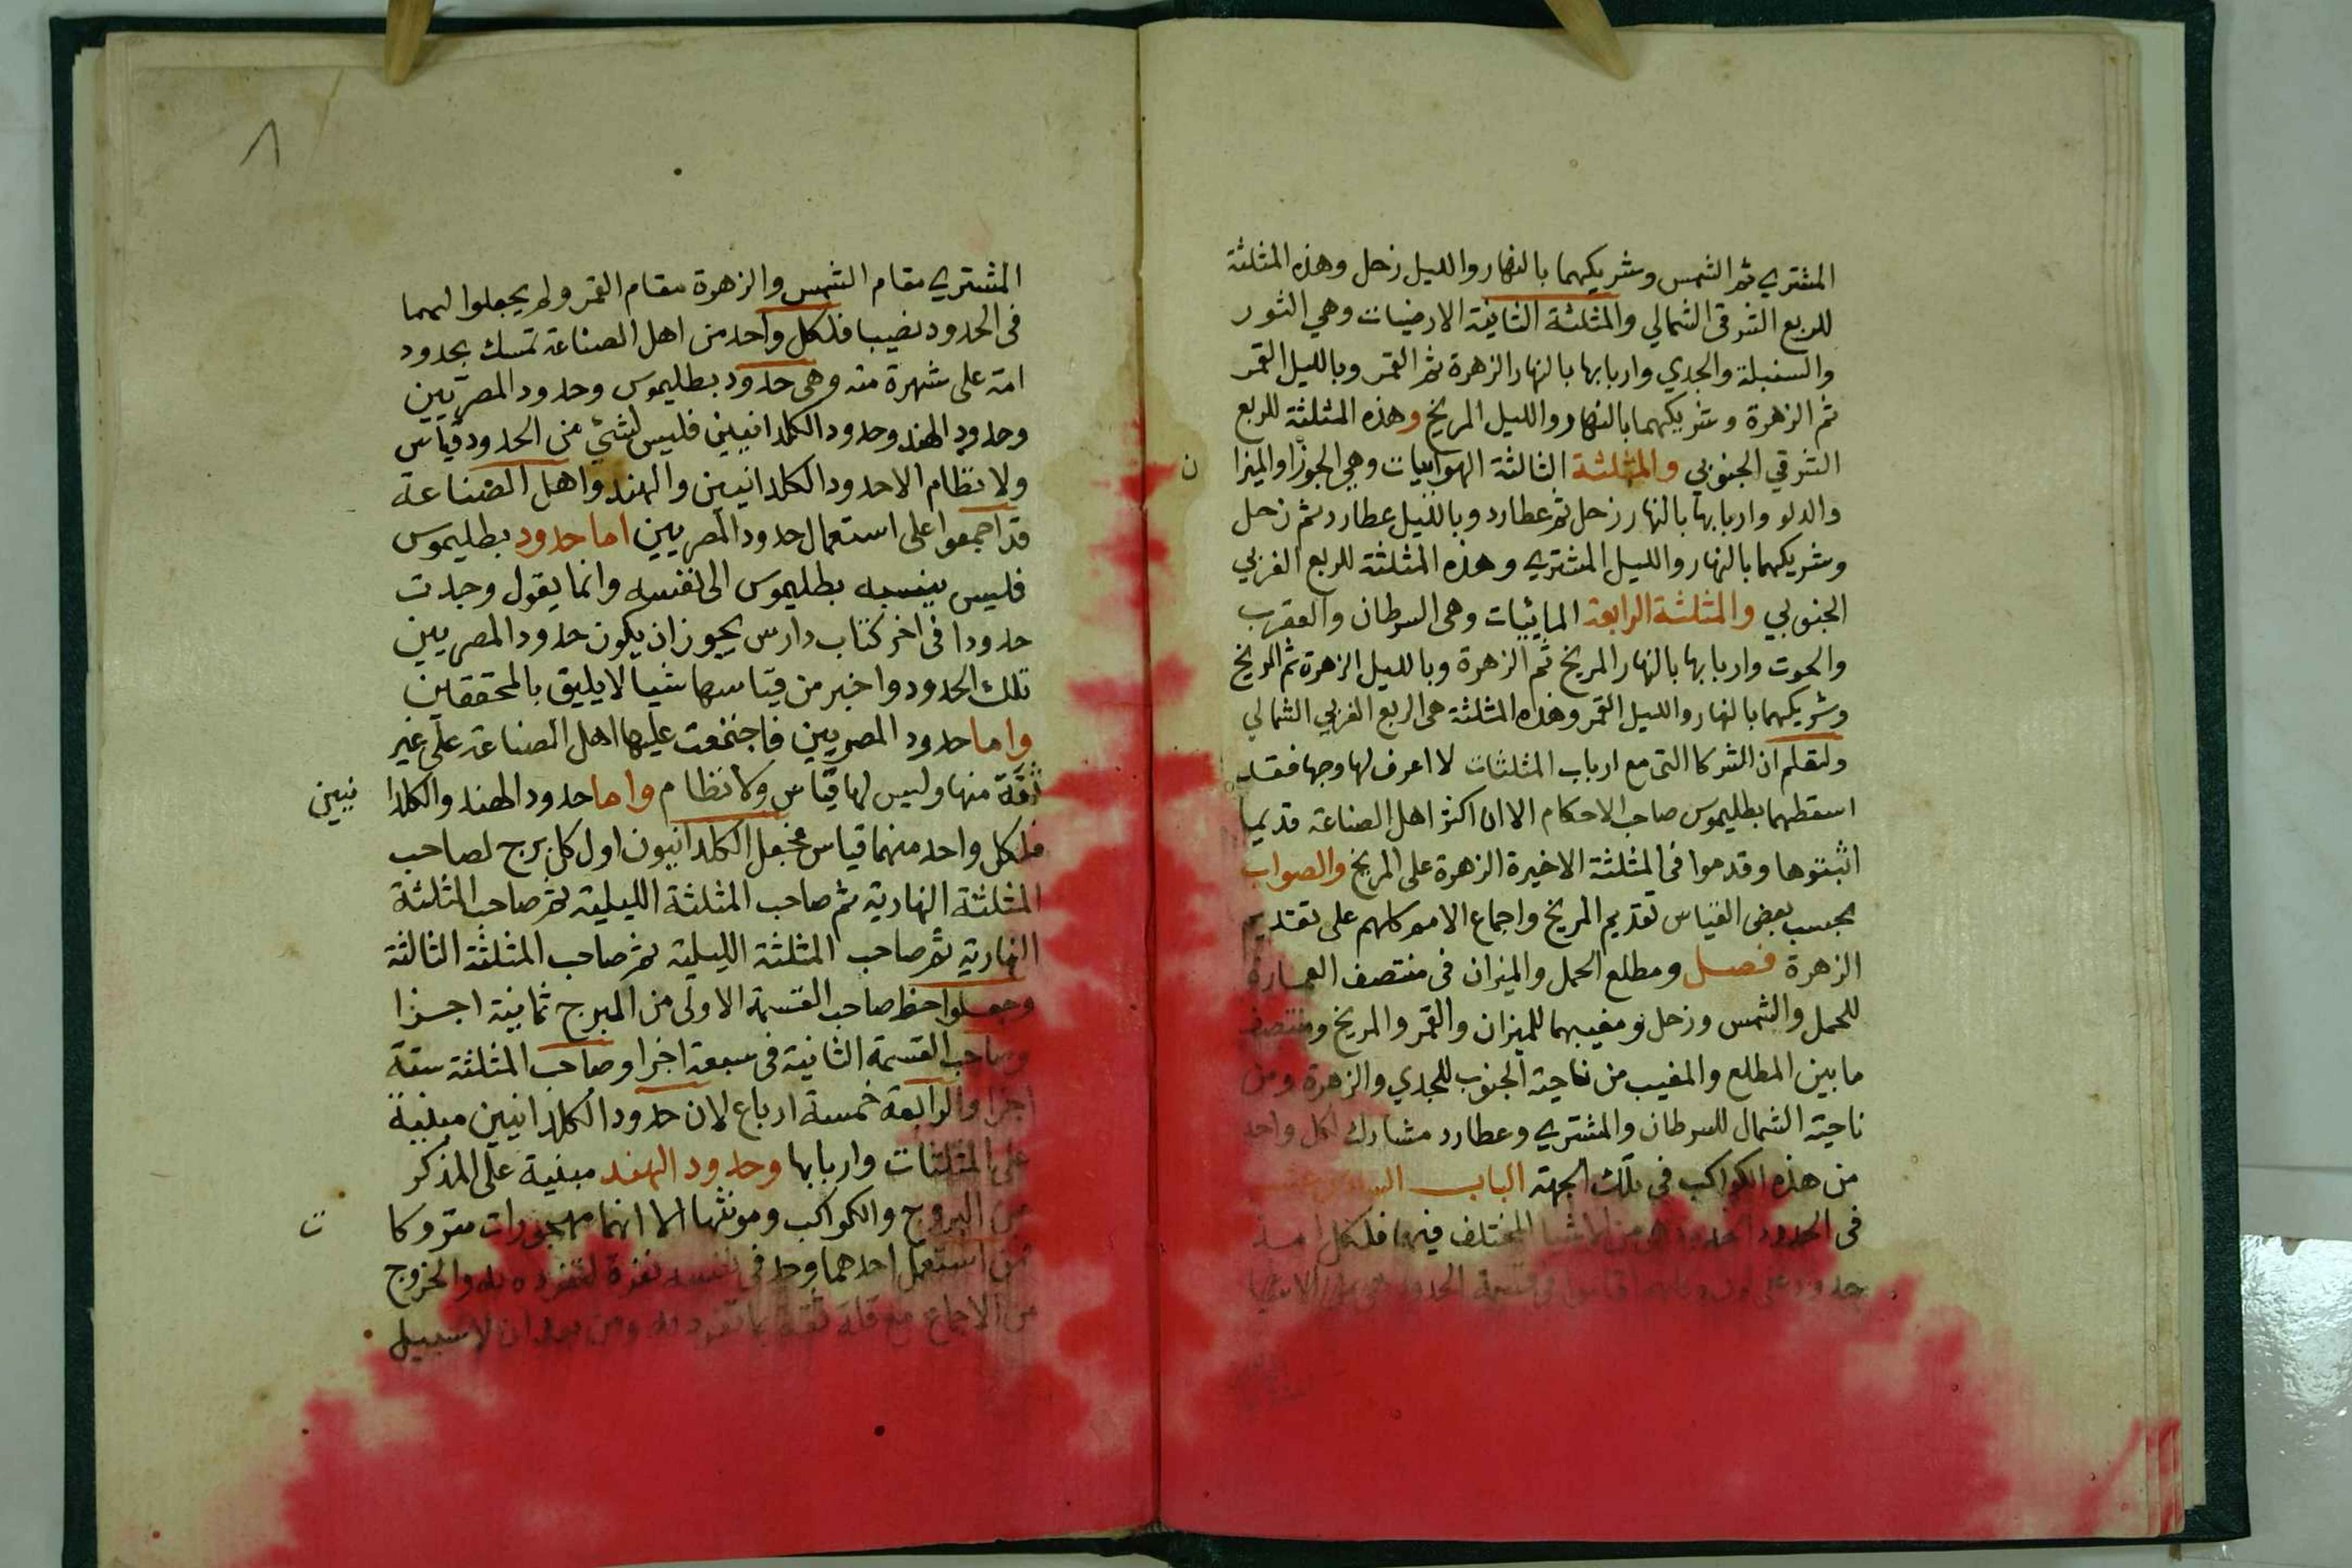 المشتري ثم الشمس وشريكهما بالنهار والليل زحل وهذه المثلثة
للربع الشرقى الشمالي والمثلثة الثانية الارضيات وهي الثور
والسنبلة والجدي واربابها بالنهار الزهرة ثم القمر وبالليل القمر
ثم الزهرة وشريكهما بالنهار والليل المريخ وهذه المثلثة للربع
الشرقي الجنوبي والمثلثة الثالثة الهوائيات وهي الجوزا والميزا ن
والدلو واربابها بالنهار زحل ثم عطارد وبالليل عطارد ثم زحل
وشريكهما بالنهار والليل المشتري وهذه المثلثة للربع الغربي
الجنوبي والمثلثة الرابعة المائيات وهى السرطان والعقرب
والحوت واربابها بالنهار المريخ ثم الزهرة وبالليل الزهرة ثم المريخ
وشريكهما بالنهار والليل القمر وهذه المثلثة هى الربع الغربي الشمالي
ولتعلم ان الشركا التى مع ارباب المثلثات لا اعرف لها وجها فقد
اسقطهما بطليموس صاحب الاحكام الا ان اكثر اهل الصناعة قديما
اثبتوها وقدموا فى المثلثة الاخيرة الزهرة على المريخ والصواب
بحسب بعض القياس تقديم المريخ واجماع الامم كلهم على تقديم
الزهرة فصل ومطلع الحمل والميزان فى منتصف العمارة
للحمل والشمس وزحل ومغيبهما للميزان والقمر والمريخ ومنتصف
ما بين المطلع والمغيب من ناحية الجنوب للجدي والزهرة ومن
ناحية الشمال للسرطان والمشتري وعطارد مشارك لكل واحد
من هذه الكواكب فى تلك الجهة الباب
فى الحدود هى من الاشيا المختلف فيها فلكل امة
حدود على
المشتري مقام الشمس والزهرة مقام القمر ولم يجعلوا لهما
فى الحدود نصيبا فلكل واحد من اهل الصناعة تمسك بحدود
امة على شهرة منه وهى حدود بطليموس وحدود المصريين
وحدود الهند وحدود الكلدانيين فليس لشئ من الحدود قياس
ولا نظام الا حدود الكلدانيين والهند واهل الصناعة
قد اجمعوا على استعمال حدود المصريين اما حدود بطليموس
فليس ينسبه بطليموس الى نفسه وانما يقول وجدت
حدودا فى اخر كتاب دارس يجوز ان يكون حدود المصريين
تلك الحدود واخبر من قياسها شيا لا يليق بالمحققين
واما حدود المصريين فاجتمعت عليها اهل الصناعة على غير
ثقة منها وليس لها قياس ولا نظام واما حدود الهند والكلدا نيين
فلكل واحد منهما قياس فجعل الكلدانيون اول كل برج لصاحب
المثلثة النهارية ثم صاحب المثلثة الليلية ثم صاحب المثلثة
النهارية ثم صاحب المثلثة الليلية ثم صاحب المثلثة الثالثة
وجعلوا حظ صاحب القسمة الاولى من البرج ثمانية اجزا
وصاحب القسمة الثانية فى سبعة اجزا وصاحب المثلثة ستة
اجزا والرابعة خمسة ارباع لان حدود الكلدانيين مبنية
على المثلثات واربابها وحدود الهند مبنية على المذكر
من البروج والكواكب ومونثها الا انهما مهجورات متروكا ت
من استعمل احدهما وجد فى نفسه نفرة لتفرده به والخروج
من الاجماع مع قلة ثقة بما تفرد به ومن بعد ان لا سبيل
٨